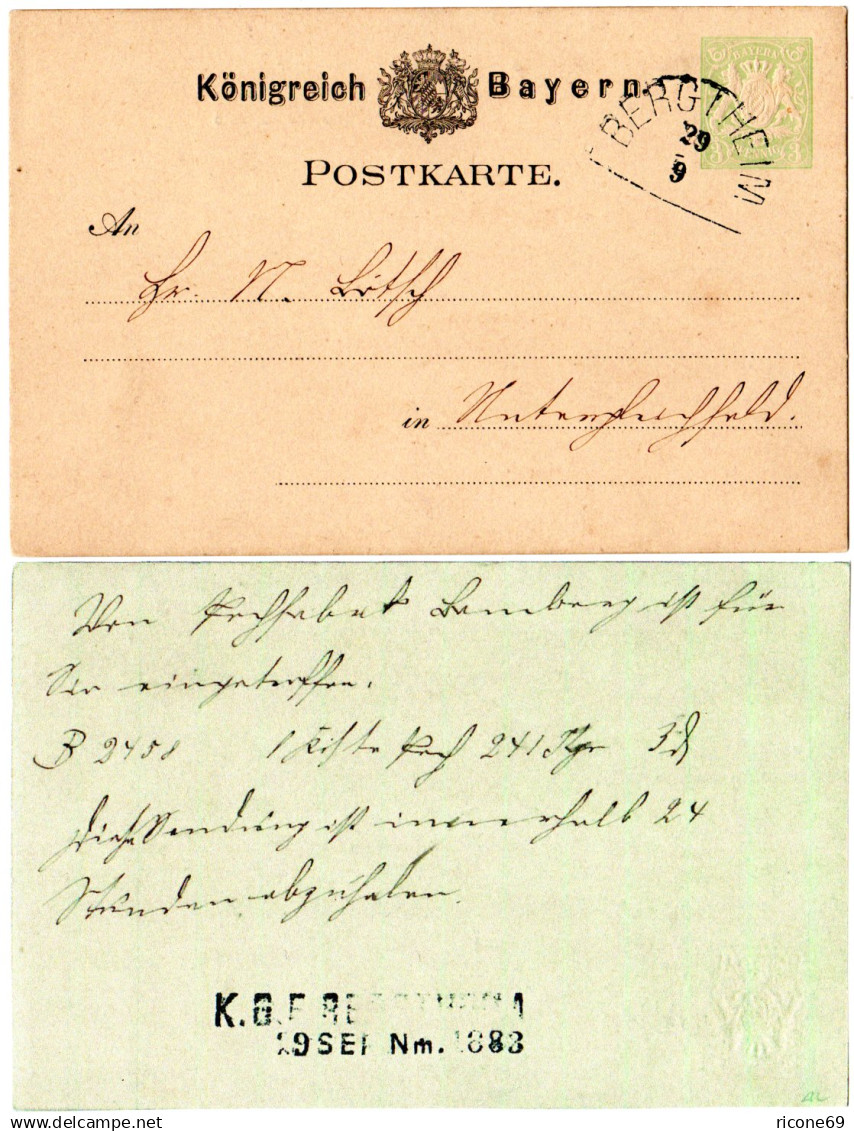 Königreich Bayern.
BAYERN
3 PFENNIG 3
BERGTHEIM
29
9
POSTKARTE.
An
Hr. N. Lötsch
in Untergleichfeld.
Von Pechfabrik Bamberg ist für
Sie eingetroffen.
B 2458 1 Kiste Pech 241 Kgr
Diese Sendung ist innerhalb 24
Stunden abzuholen.
K.B.E BERGTHEIM
29 SEP Nm. 1883
ricone69